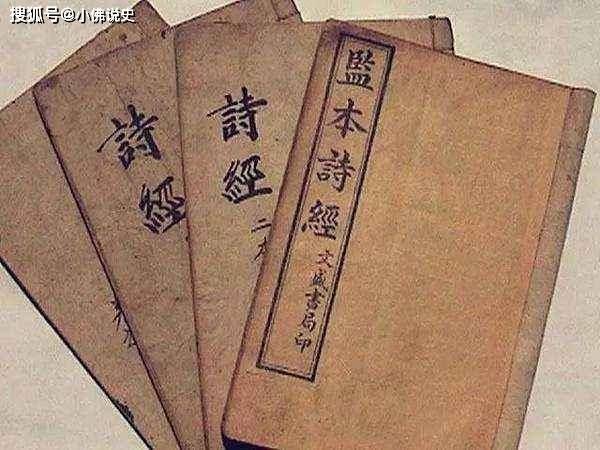 搜狐号@小佛说史
詩經
詩經
二本
監本詩經
文盛書局印